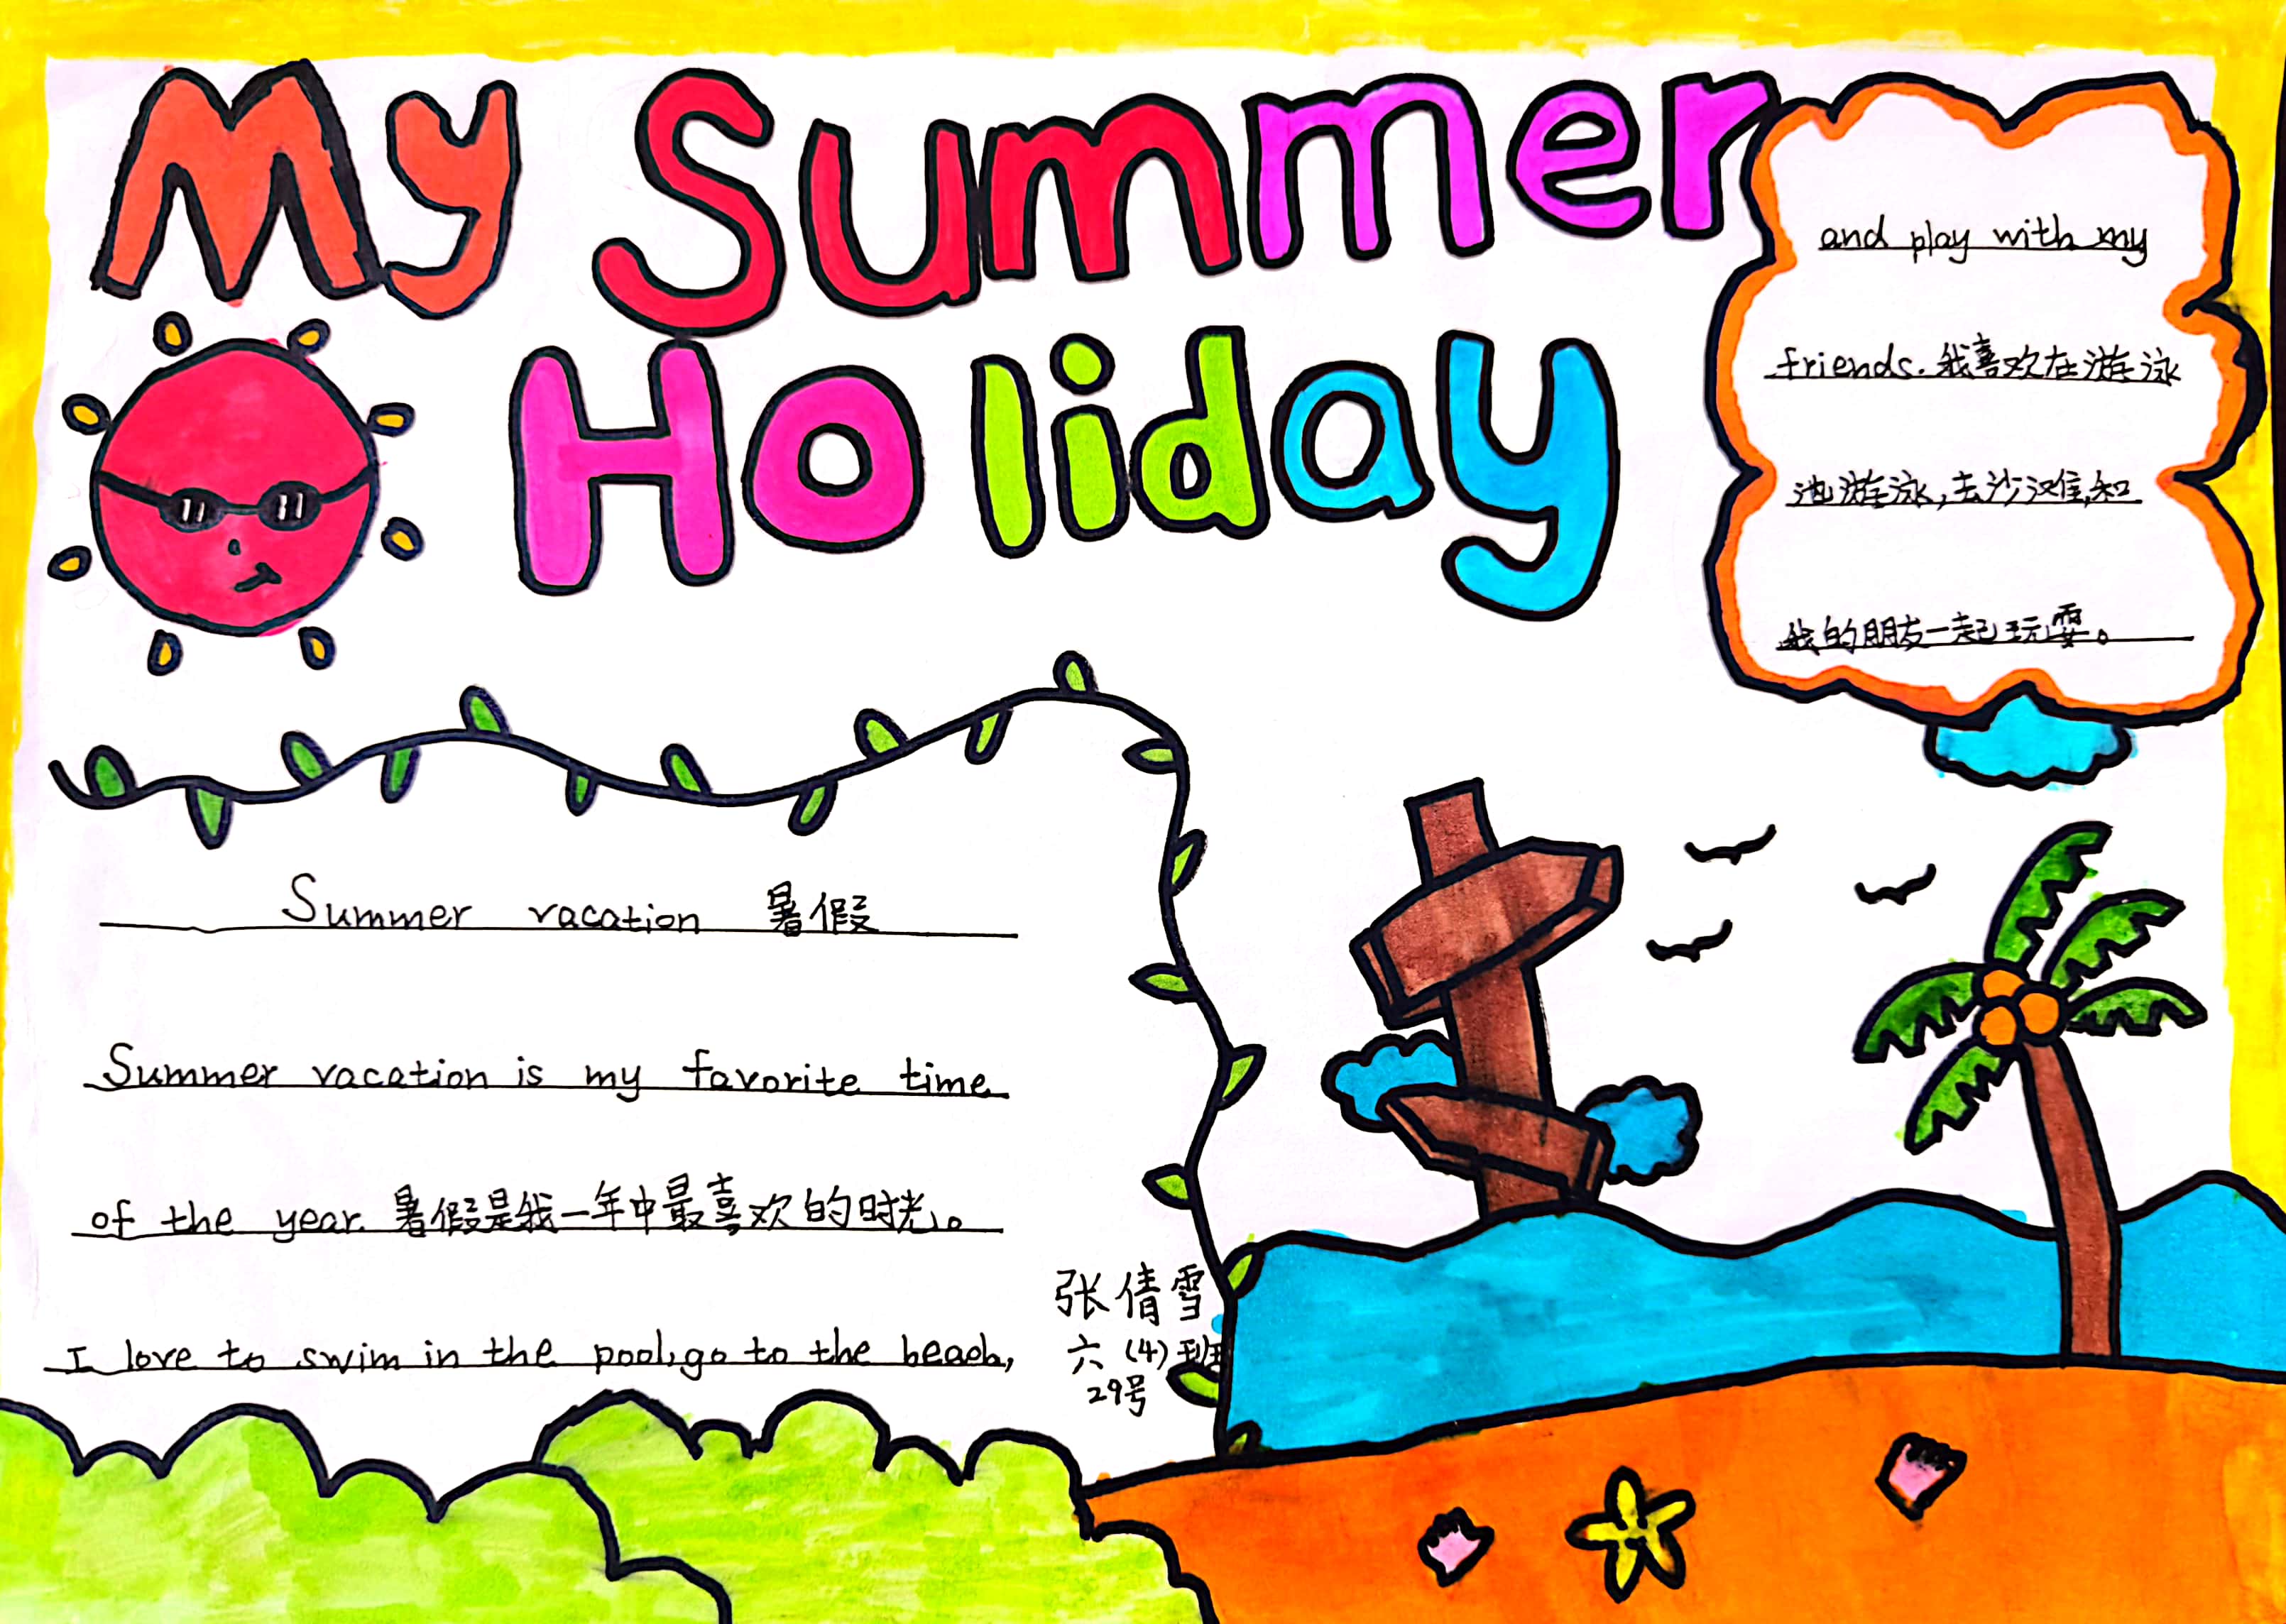 My Summer
Holiday
Summer vacation 暑假
Summer vacation is my favorite time
of the year. 暑假是我一年中最喜欢的时光。
I love to swim in the pool, go to the beach,
and play with my
friends. 我喜欢在游泳
池游泳,去沙滩,和
我的朋友一起玩耍。
张倩雪
六(4)班
29号